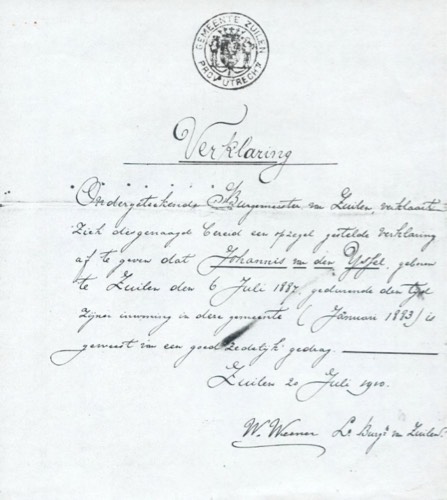 GEMEENTE ZUILEN
PROV. UTRECHT
Verklaring
Ondergeteekende Burgemeester van Zuilen, verklaart
zich desgevraagd bereid een op zegel gestelde verklaring
af te geven dat Johannis van den Yssel, geboren
te Zuilen den 6 Juli 1887, gedurende den tijd
zijner inwoning in deze gemeente ( Januari 1883) is
geweest van een goed zedelijk gedrag.
Zuilen 20 Juli 1910.
W. Werner Lo Burgr van Zuilen.